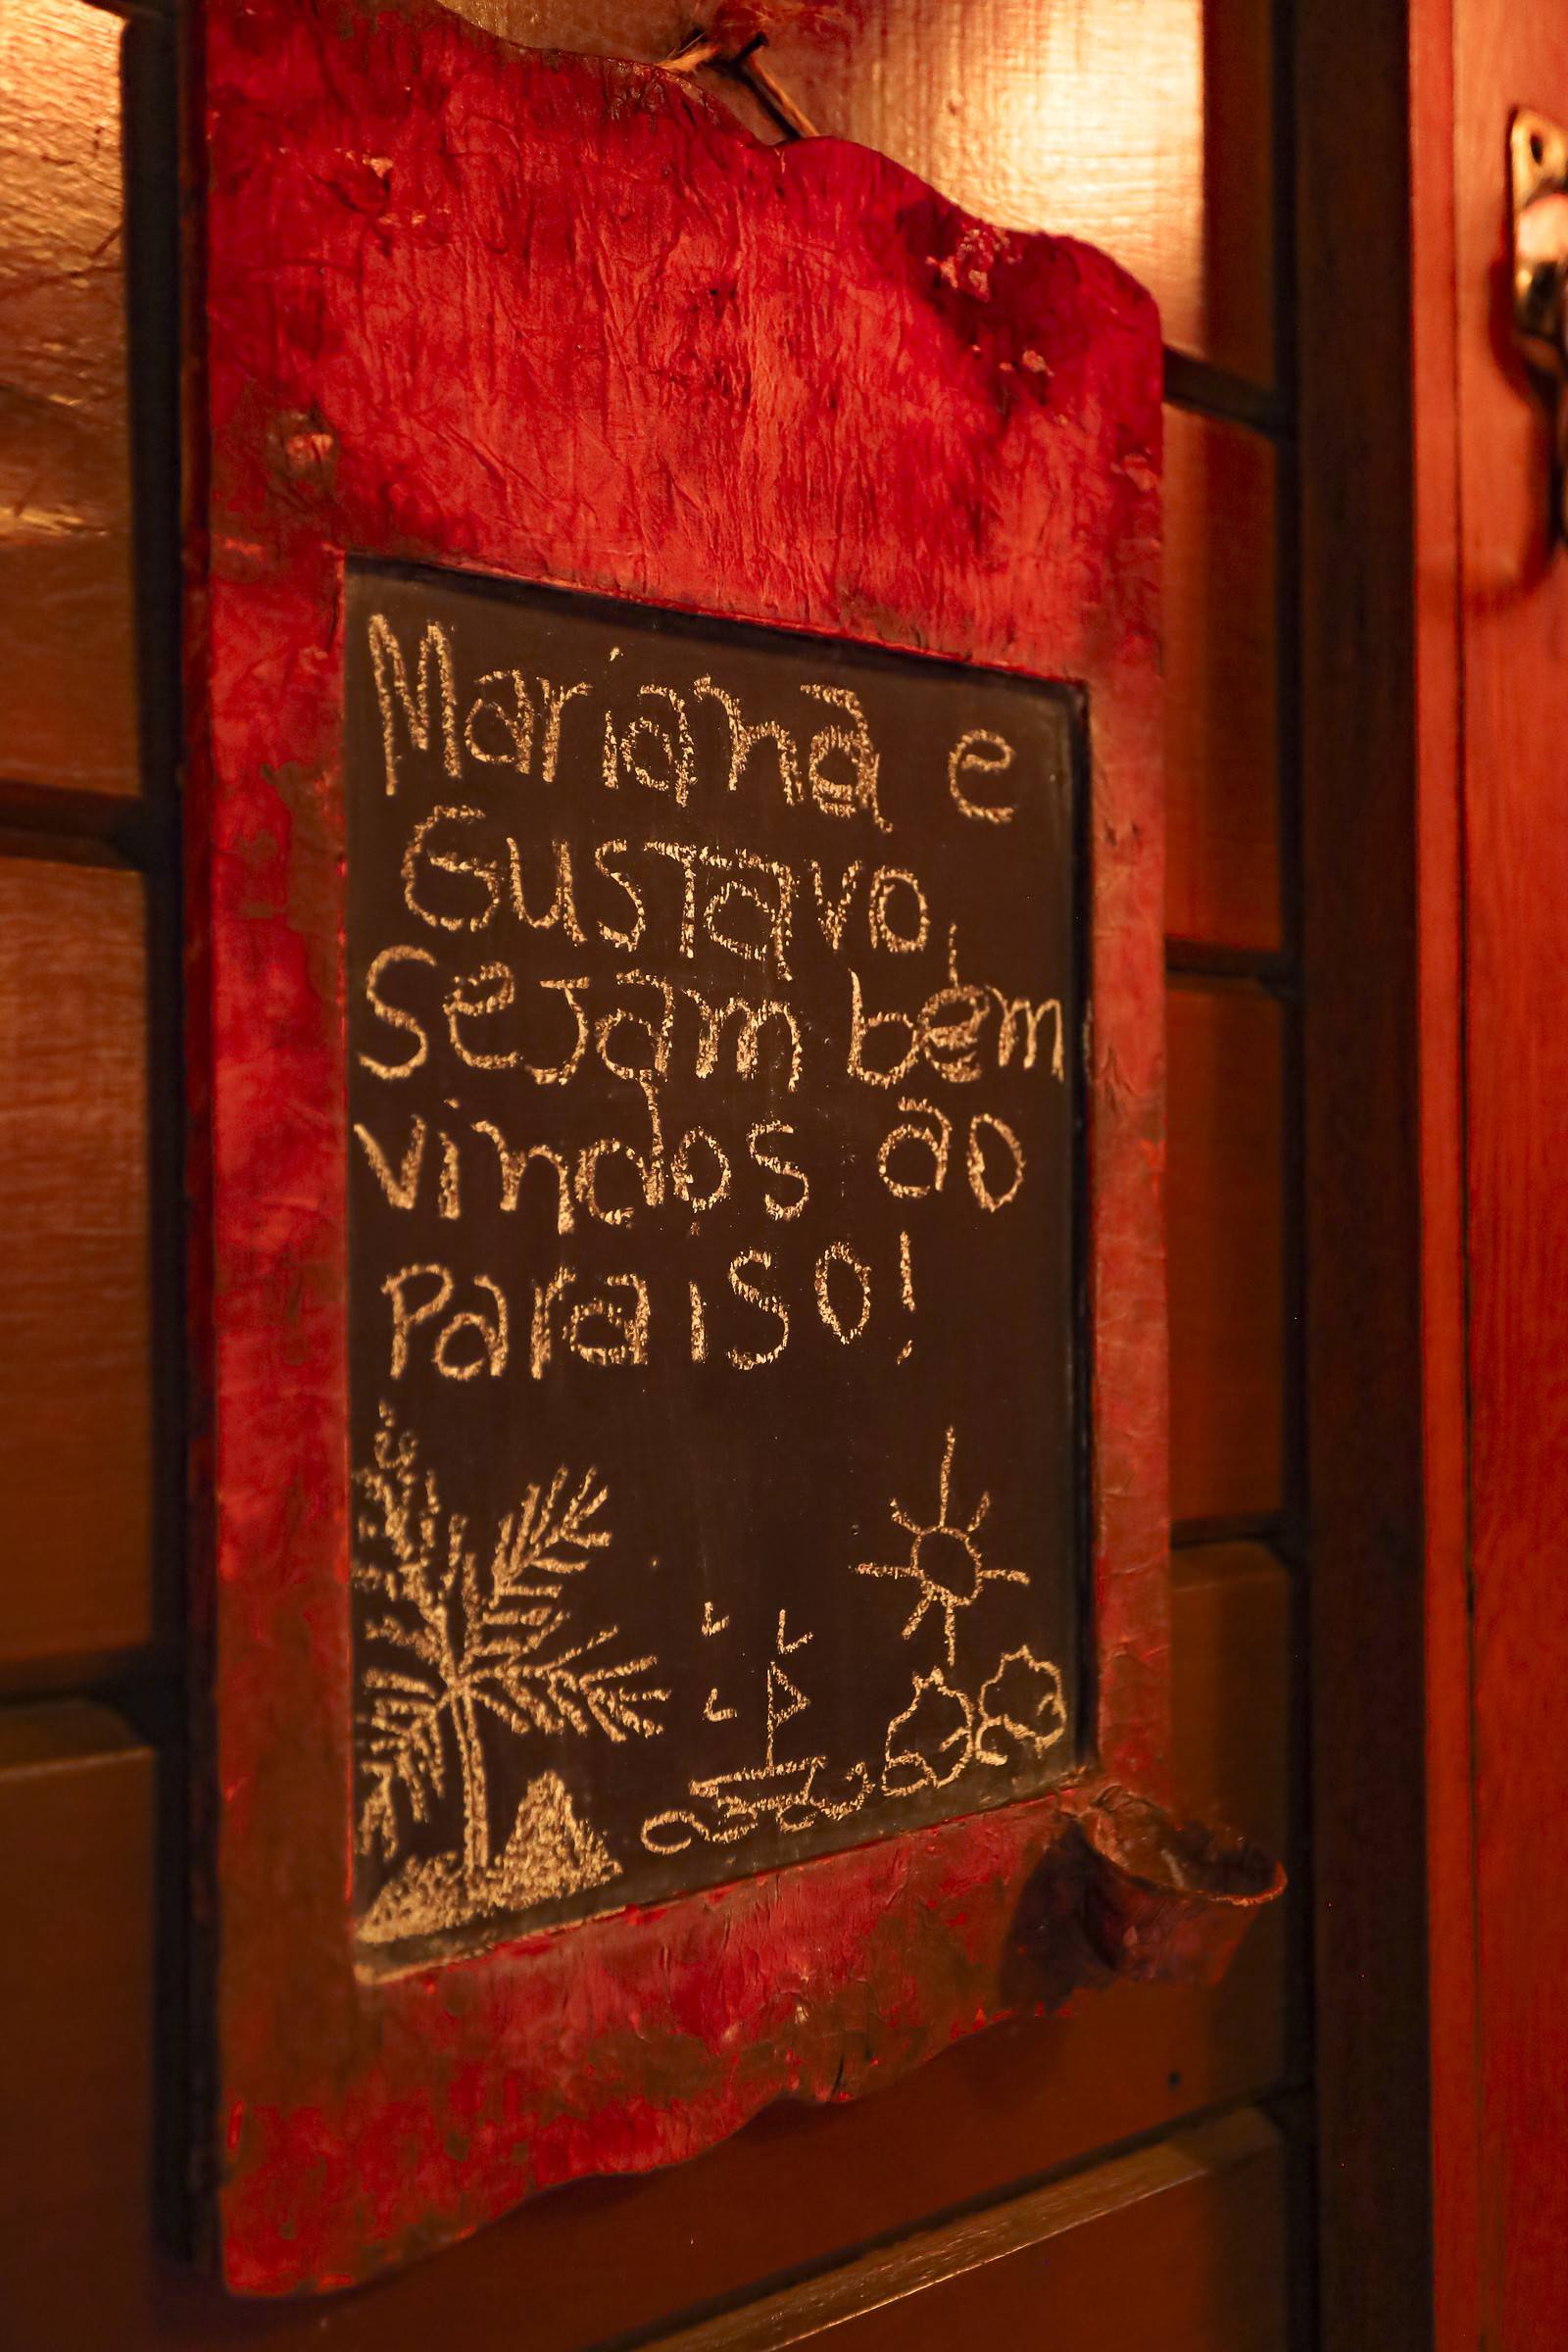 Mariana e
Gustavo,
Sejam bem
vindos ao
Paraiso!